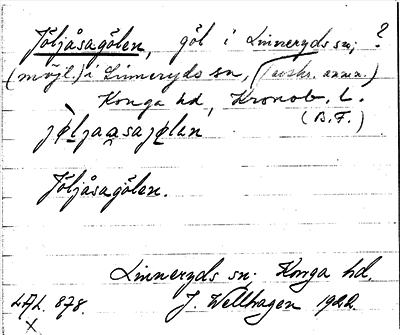 Jöljåsagölen, göl i Linneryds sn; ?
(möjl.) i Linneryds sn, (avskr. anm.)
Konga hd, Kronob. L.
(B.F.)
jøljaasajølan
Jöljåsagölen.
Linneryds sn. Konga hd.
LAL. 878. J. Wellhagen 1922
X